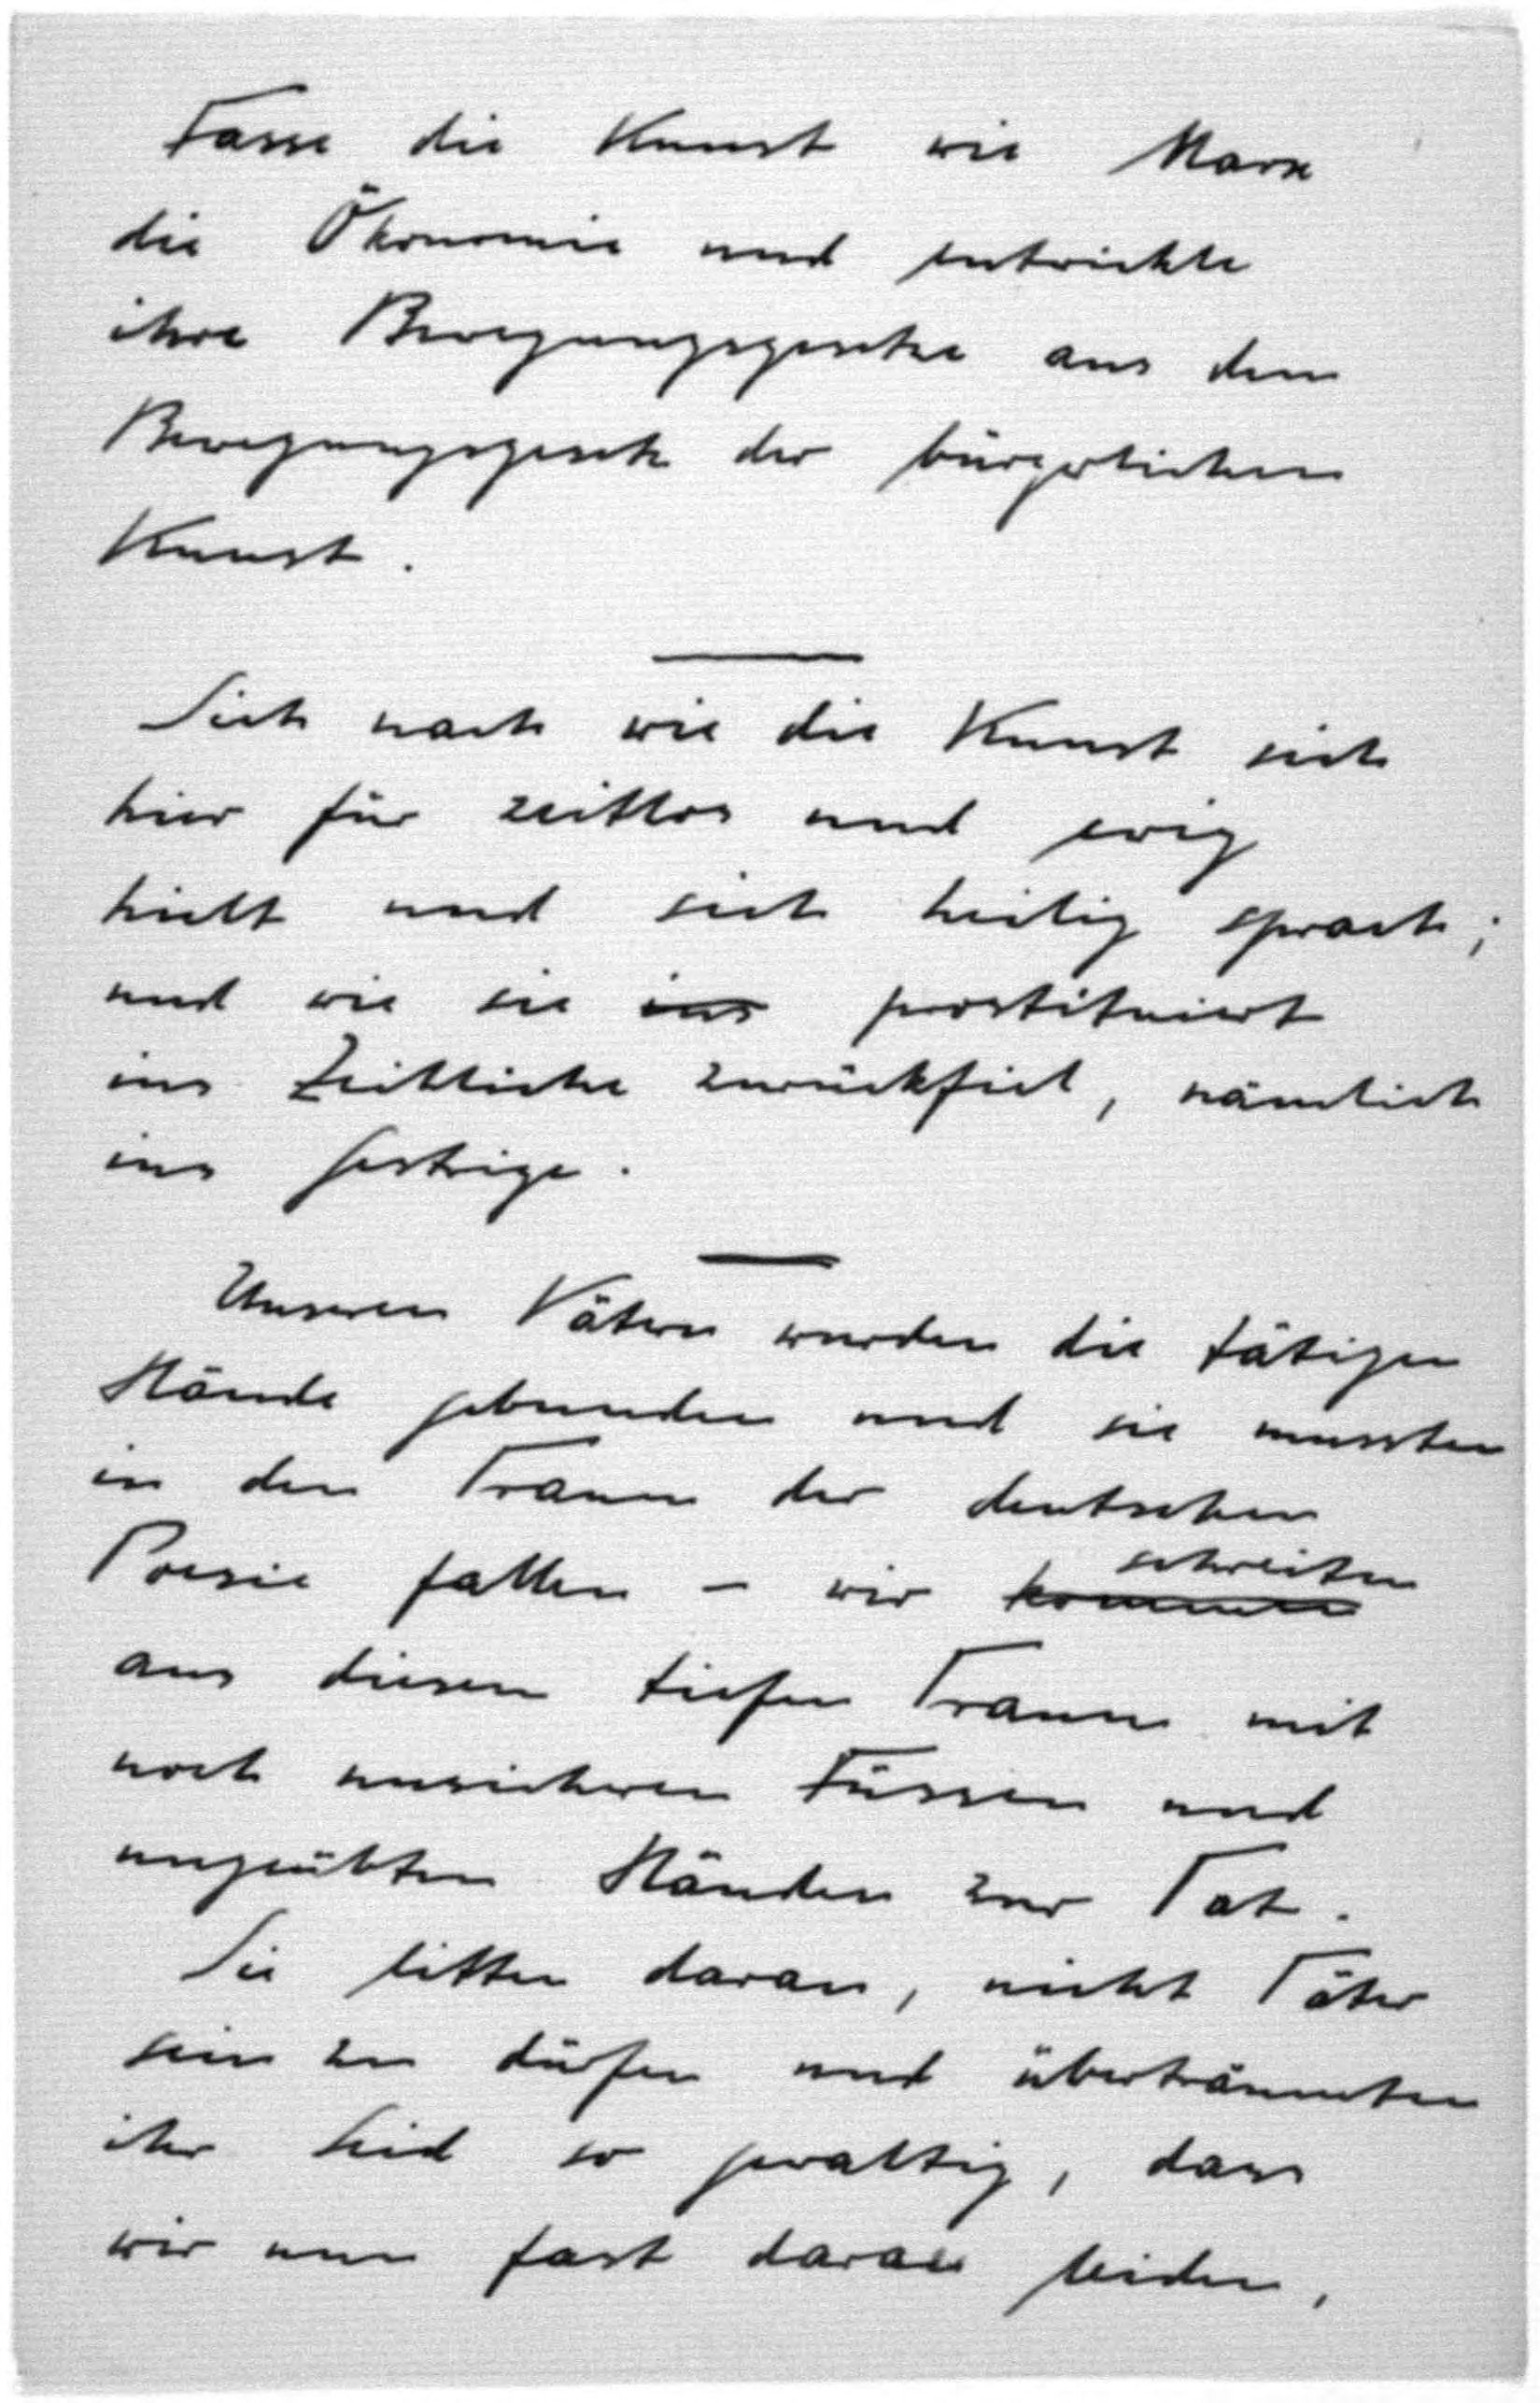 Fasse die Kunst wie Marx
die Ökonomie und entwickle
ihre Bewegungsgesetze aus dem
Bewegungsgesetz der bürgerlichen
Kunst.
Sieh nach wie die Kunst sich
hier für zeitlos und ewig
hielt und sich heilig sprach;
und wie sie ins prostituiert
ins Zeitliche zurückfiel, nämlich
ins Gestrige.
Unseren Vätern wurden die tätigen
Hände gebunden und sie mussten
in den Traum der deutschen
Poesie fallen – wir kommen schreiten
aus diesem tiefen Traum mit
noch unsicheren Füssen und
ungeübten Händen zur Tat.
Sie litten daran, nicht Täter
sein zu dürfen und überträumten
ihr Leid so gewaltig, dass
wir nun fast daran leiden,